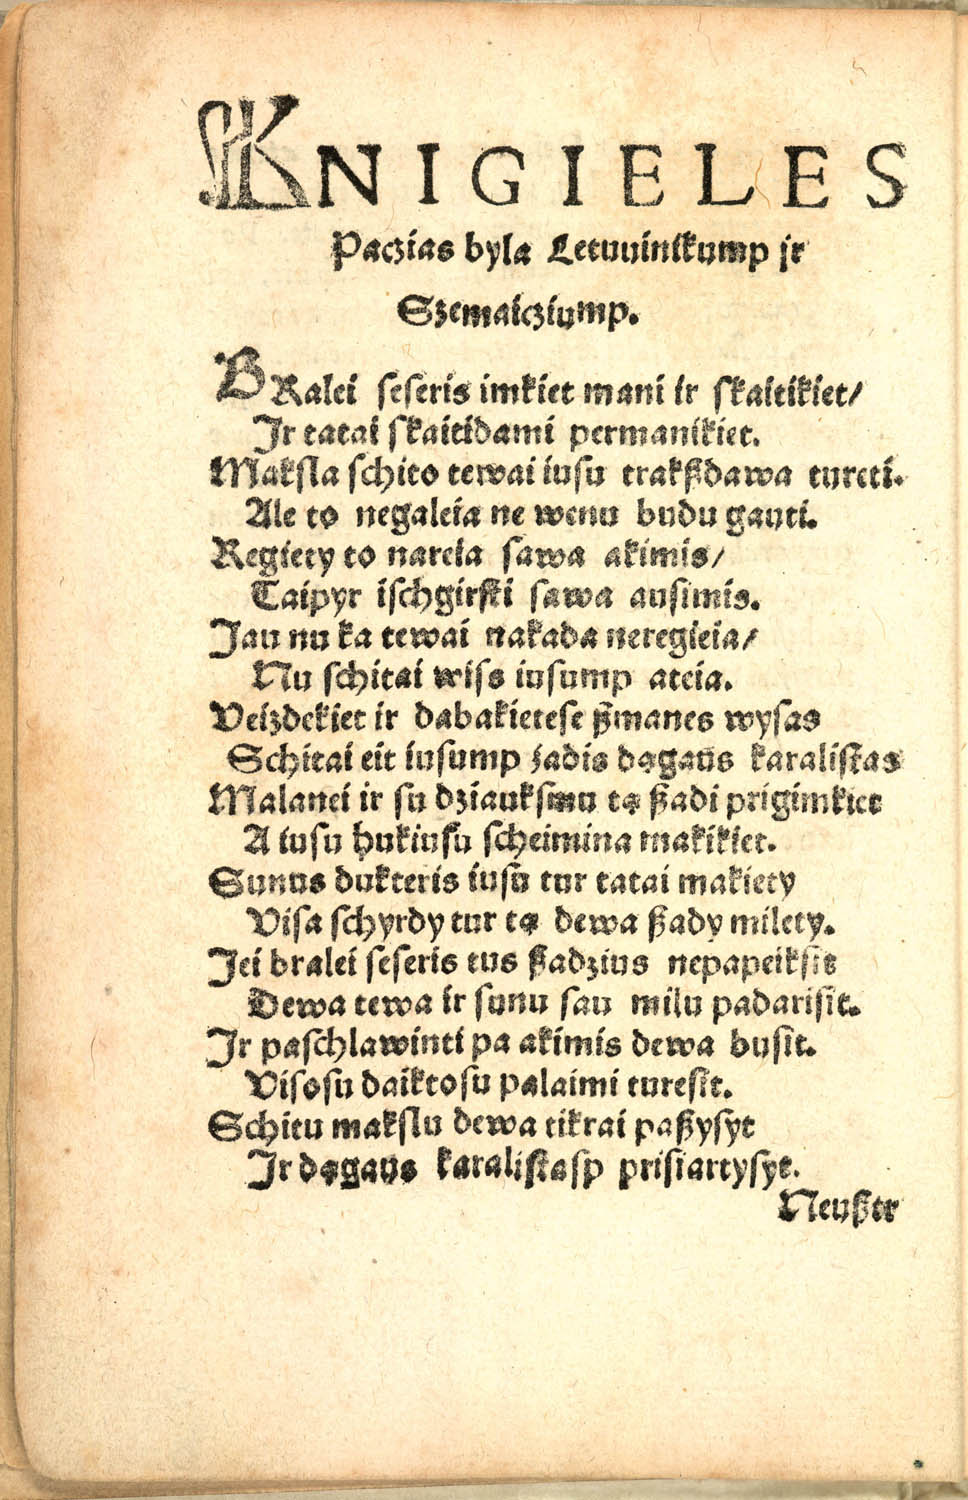 KNIGIELES
Paczias byla Letuuinikump jr
Szemaicziump.
BRalei seseris imkiet mani ir skaitikiet/
Jr tatai skaitidami permanikiet.
Maksla schito tewai iusu trakßdawa tureti.
Ale to negaleia ne wenu budu gauti.
Regiety to nareia sawa akimis/
Taipyr ischgirsti sawa ausimis.
Jau nu ka tewai nakada neregieia/
Nu schitai wiss iusump ateia.
Veizdekiet ir dabakietese ßmanes wysas
Schitai eit iusump zadis dągaus karalistas
Malanei ir su dziauksmu tą ßadi prigimkiet
A iusu hukiusu scheimina makikiet.
Sunus dukteris iusu tur tatai makiety
Visa schyrdy tur tą dewa ßady milety.
Jei bralei seseris tus ßadzius nepapeiksit
Dewa tewa ir sunu sau milu padarisit.
Jr paschlawinti pa akimis dewa busit.
Visosu daiktosu palaimi turesit.
Schitu makslu dewa tikrai paßysyt
Jr dągaus karalistasp prisiartysyt.
Neußtr